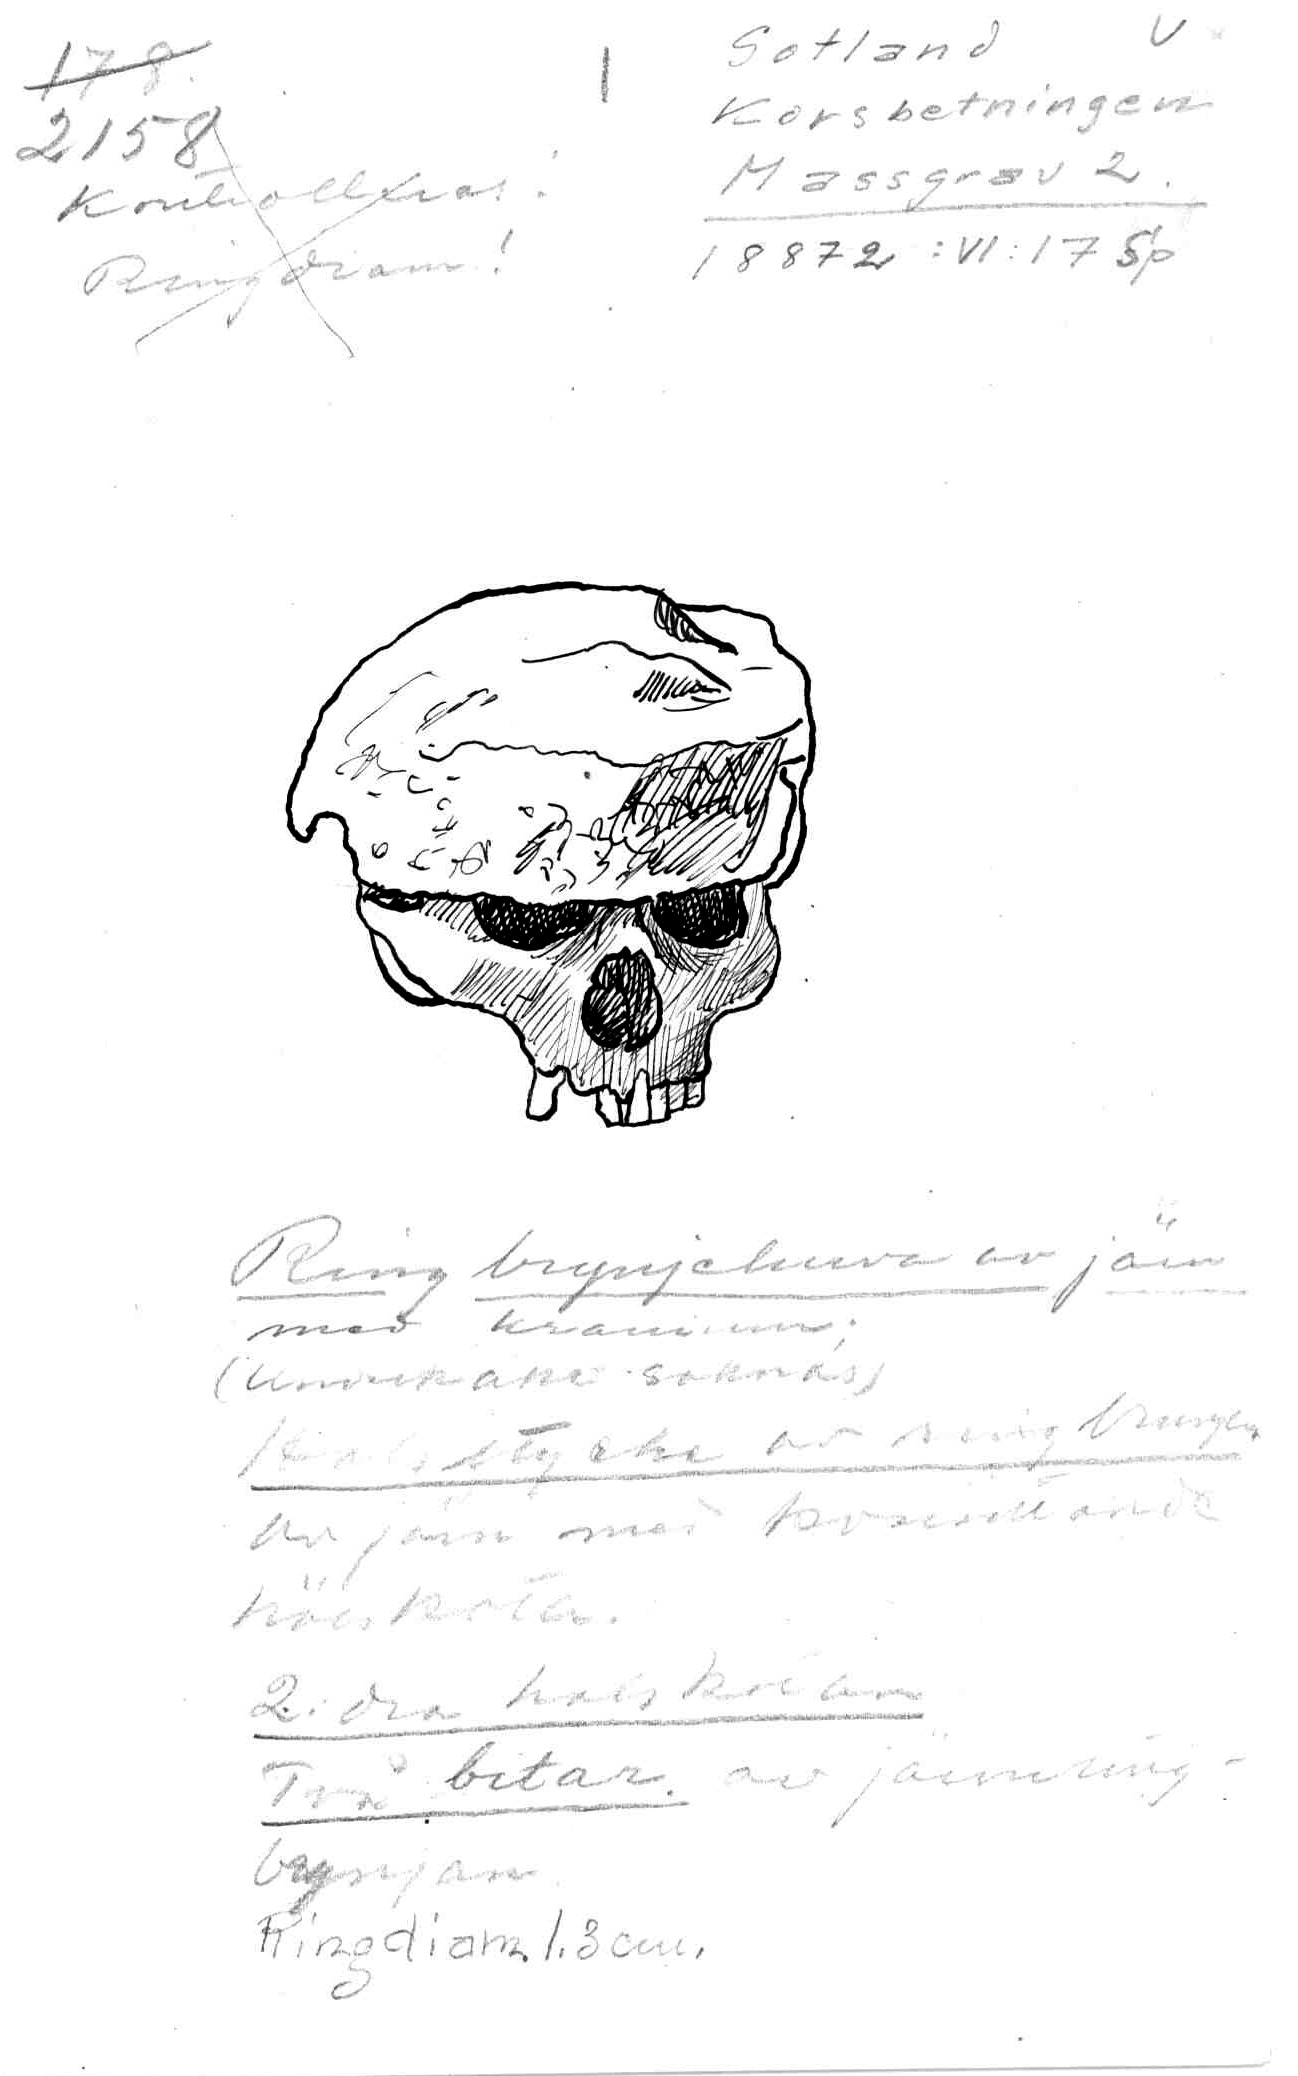 178.
2158
Kontrolleras!
Ringdiam!
Gotland V
Korsbetningen
Massgrav 2.
18872 :VI:17 Sp
Ring brynjehuva av järn
med kranium;
(Underkäke saknas)
Halsstycke av ring brynja
av järn med kvarsittande
halskota.
2:dra halskotan
Två bitar av järnring-
brynjan
Ringdiam. 1.3 cm.